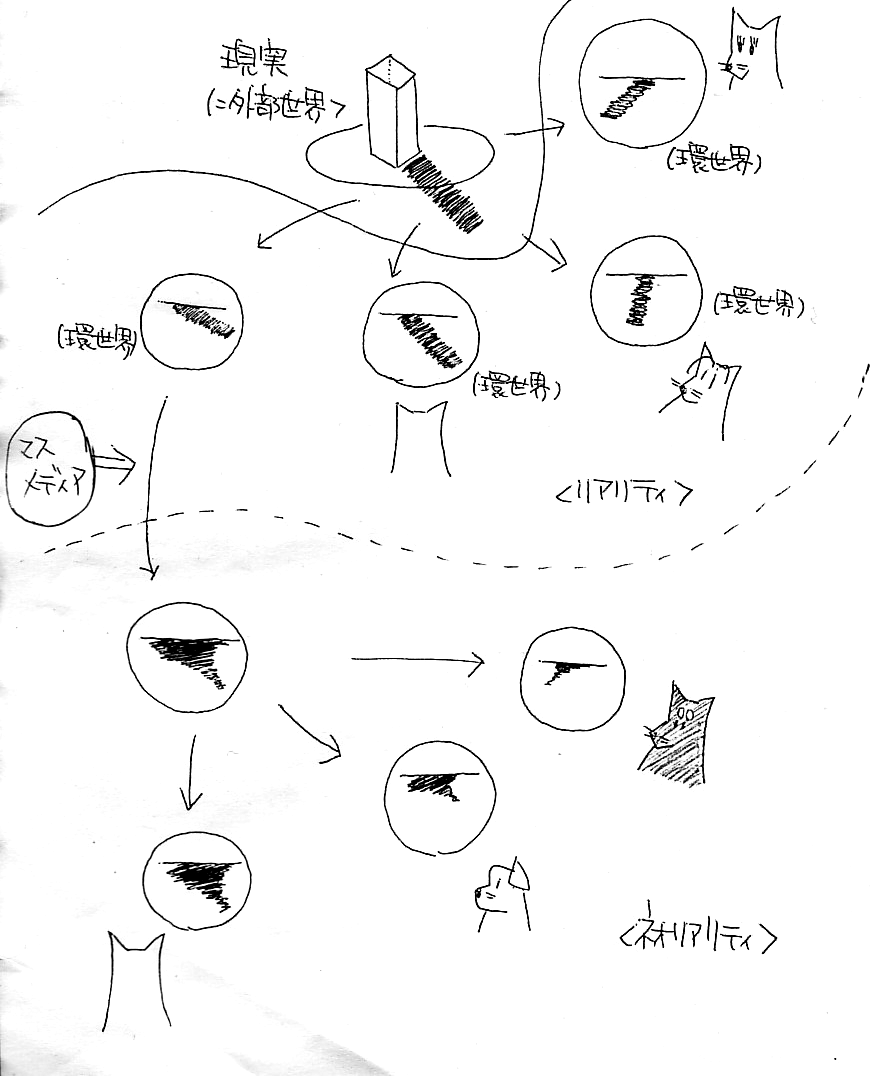 現実
(=外部世界)
(環世界)
(環世界)
(環世界)
(環世界)
マス
メディア
<リアリティ>
<ネオリアリティ>